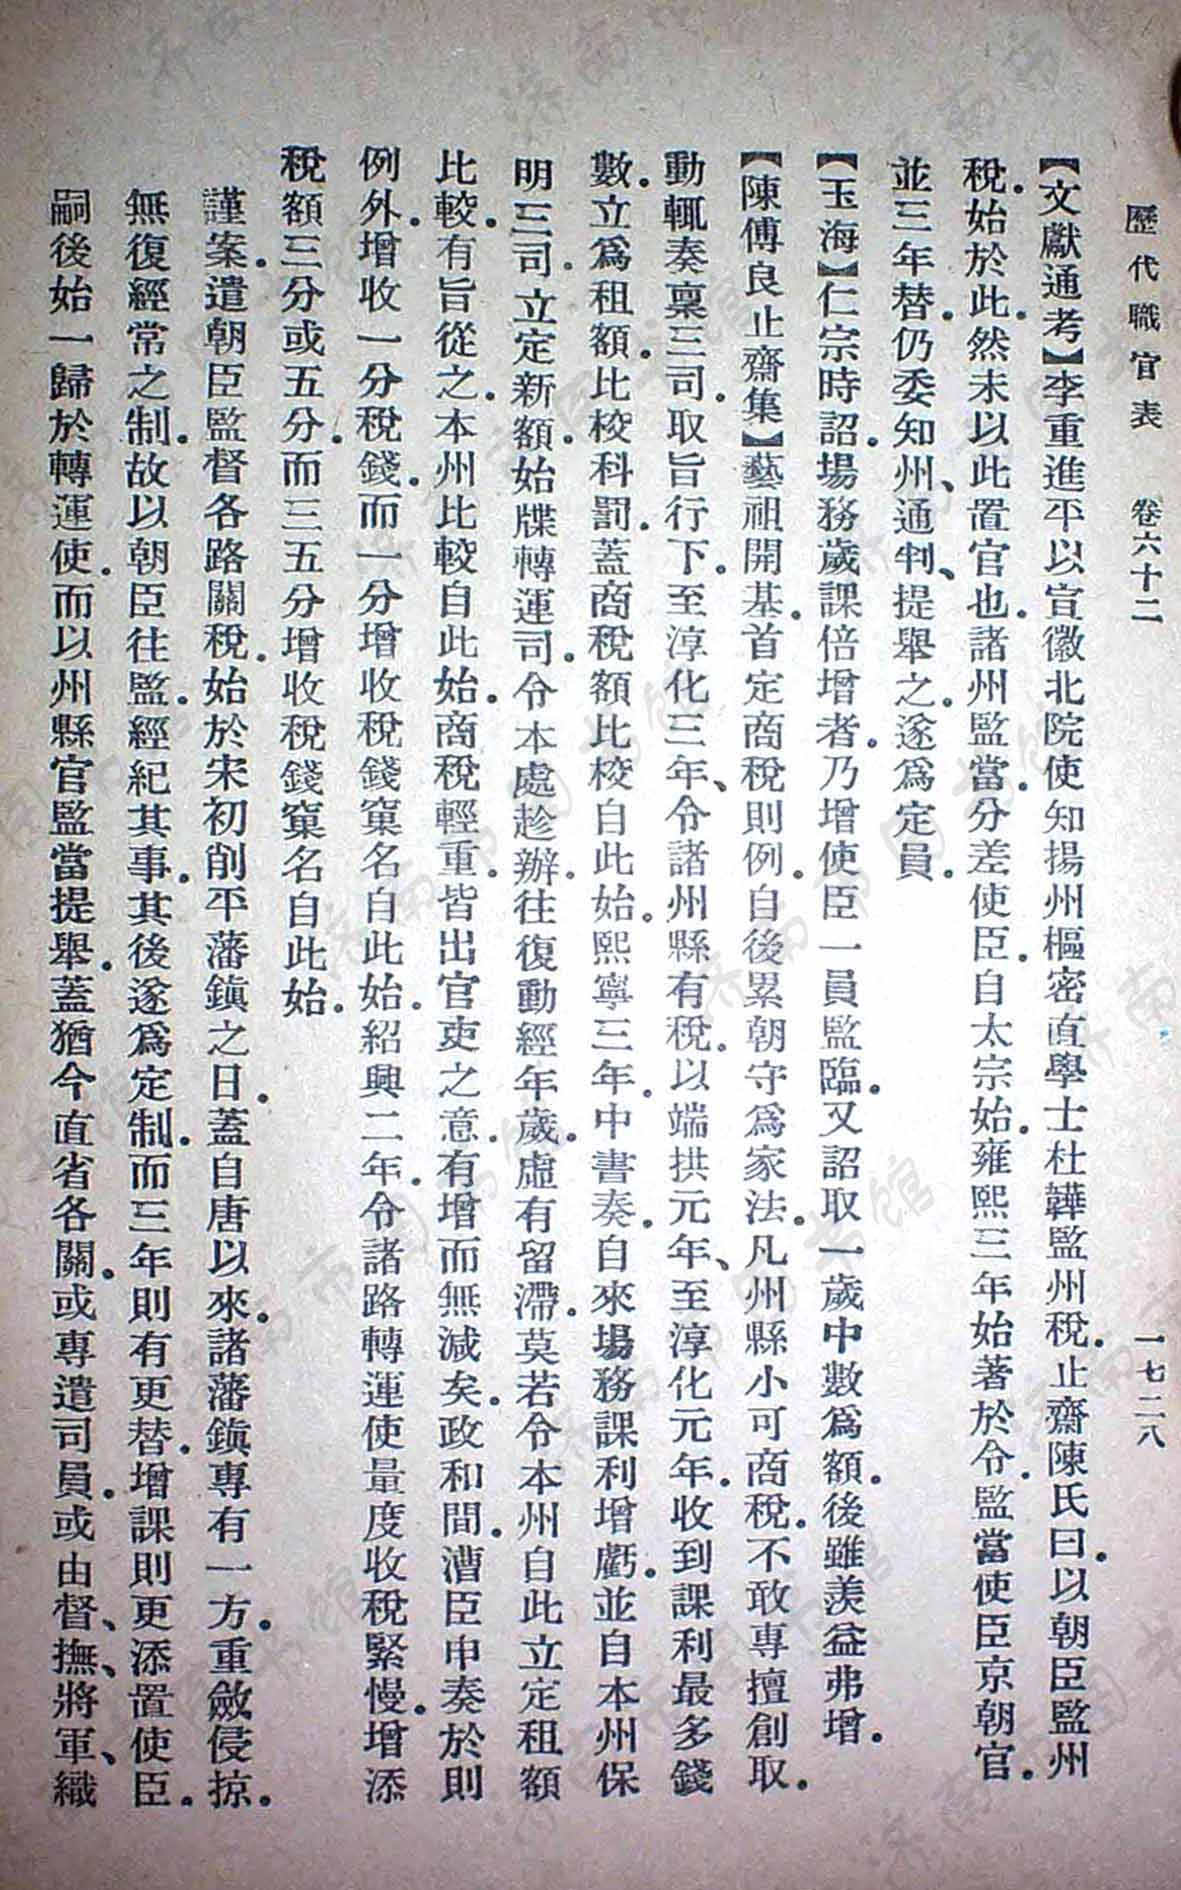 歷代職官表　卷六十二　一七二八
【文獻通考】李重進平以宣徽北院使知揚州樞密直學士杜韡監州稅。止齋陳氏曰。以朝臣監州
稅。始於此。然未以此置官也。諸州監當。分差使臣。自太宗始。雍熙三年始著於令。監當使臣京朝官。
並三年替。仍委知州、通判、提舉之。遂爲定員。
【玉海】仁宗時詔。場務歲課倍增者。乃增使臣一員監臨。又詔取一歲中數爲額。後雖羨益弗增。
【陳傅良止齋集】藝祖開基。首定商稅則例。自後累朝守爲家法。凡州縣小可商稅。不敢專擅創取。
動輒奏稟三司。取旨行下。至淳化三年、令諸州縣有稅。以端拱元年、至淳化元年。收到課利最多錢
數。立爲租額。比校科罰。蓋商稅額比校自此始。熙寧三年。中書奏。自來場務課利增虧。並自本州保
明三司。立定新額。始牒轉運司。令本處趁辦。往復動經年歲。虛有留滯。莫若令本州自此立定租額
比較。有旨從之。本州比較自此始。商稅輕重。皆出官吏之意。有增而無減矣。政和間。漕臣申奏於則
例外。增收一分稅錢。而一分增收稅錢窠名自此始。紹興二年。令諸路轉運使量度收稅緊慢。增添
稅額三分或五分。而三五分增收稅錢窠名自此始。
謹案。遣朝臣監督各路關稅。始於宋初削平藩鎭之日。蓋自唐以來。諸藩鎭專有一方。重斂侵掠。
無復經常之制。故以朝臣往監。經紀其事。其後遂爲定制。而三年則有更替。增課則更添置使臣。
嗣後始一歸於轉運使。而以州縣官監當提舉。蓋猶今直省各關。或專遣司員。或由督、撫、將軍、織